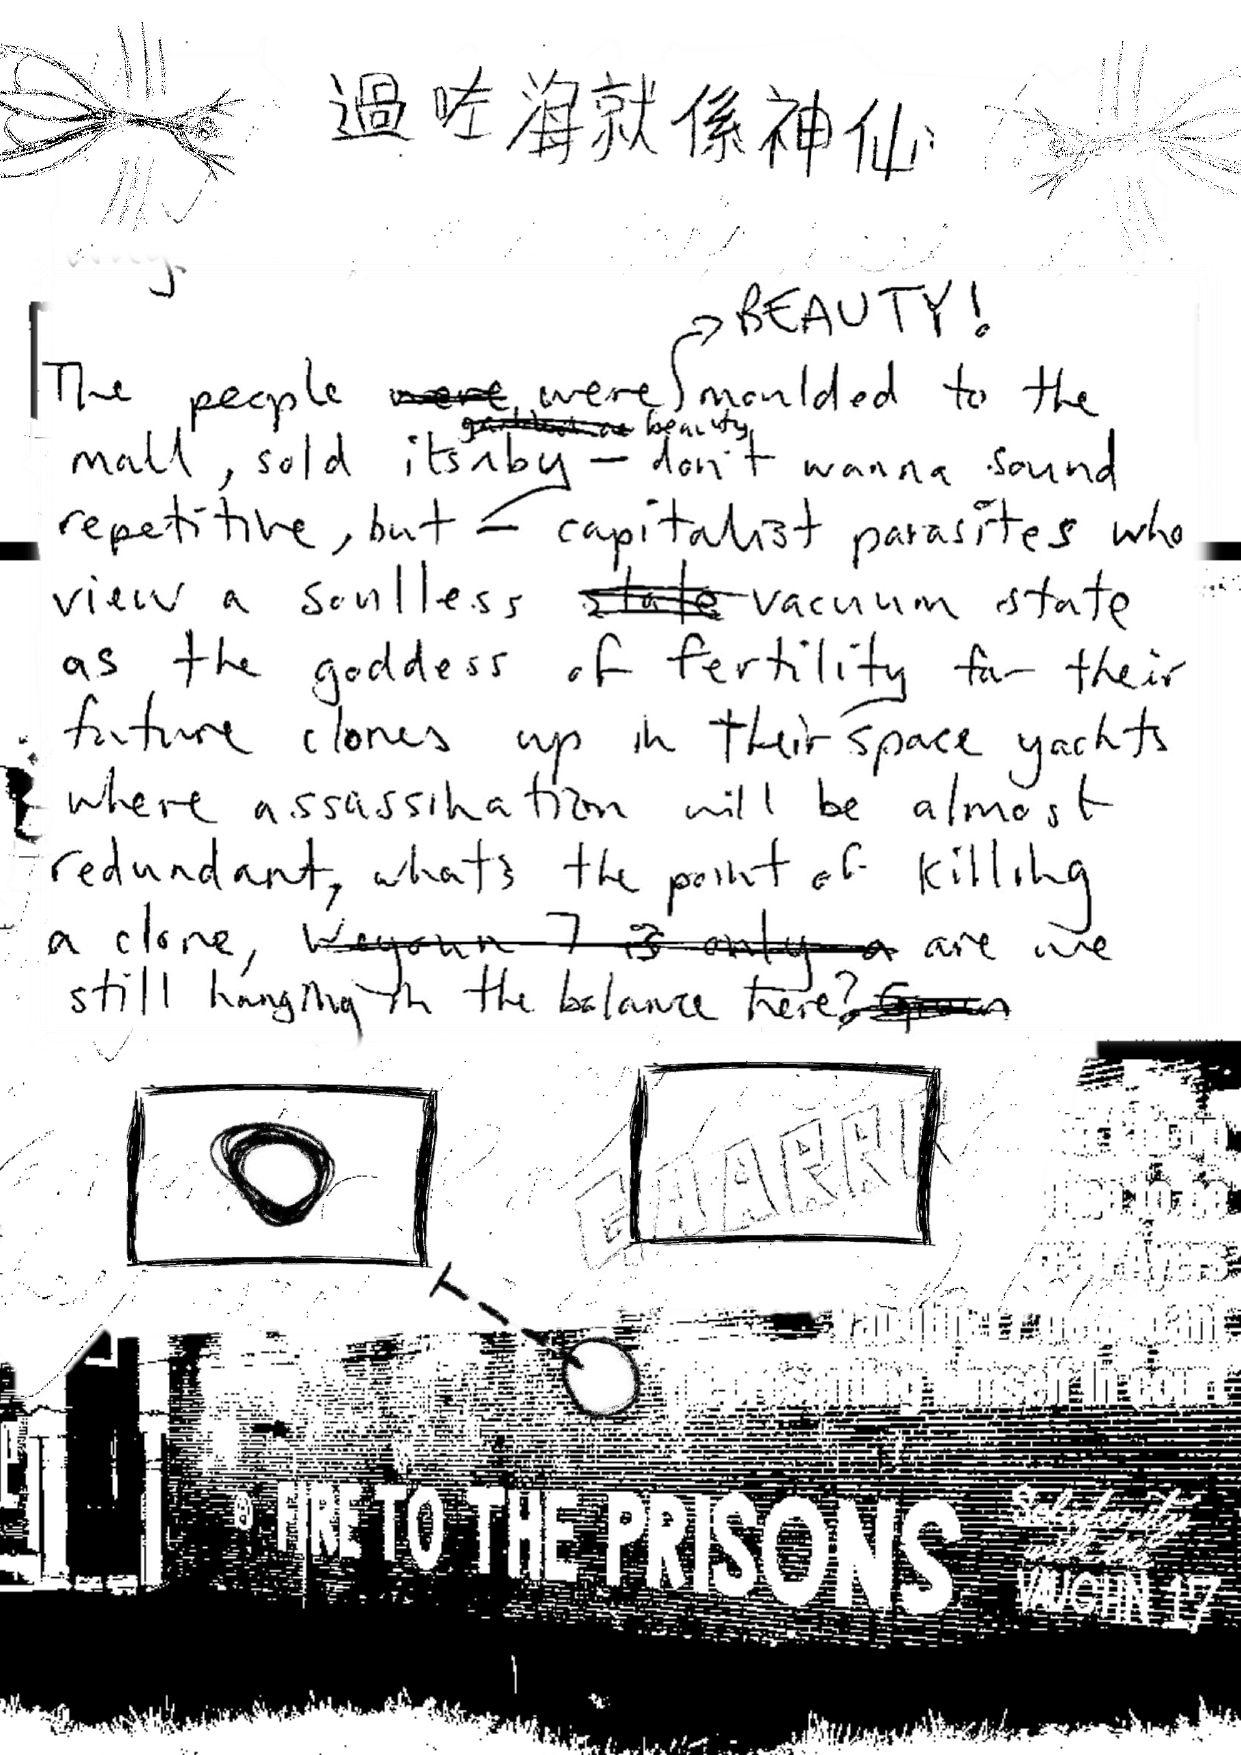 過咗海就係神仙
BEAUTY!
The people were were moulded to the
beauty
mall, sold its by – don't wanna sound
repetitive, but – capitalist parasites who
view a soulless state vacuum state
as the goddess of fertility for their
future clones up in their space yachts
where assassination will be almost
redundant, whats the point of killing
a clone, Weyoun 7 is only a are we
still hanging in the balance here?
presenting himself in court
FIRE TO THE PRISONS
Solidarity
with the
VAUGHN 17